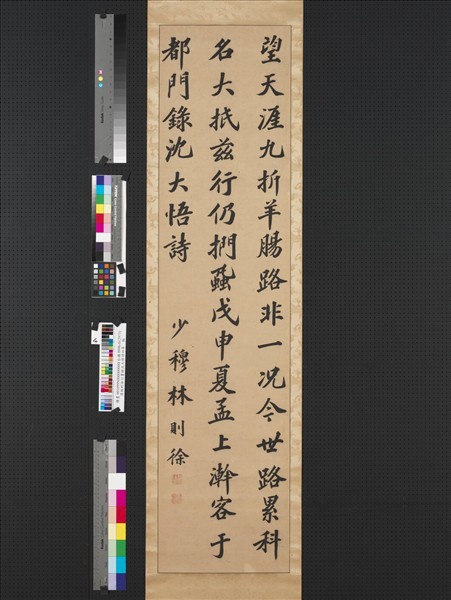 望天涯九折羊腸路非一况今世路累科
名大抵茲行仍捫蝨戊申夏孟上澣客于
都門錄沈大悟詩
少穆林則徐